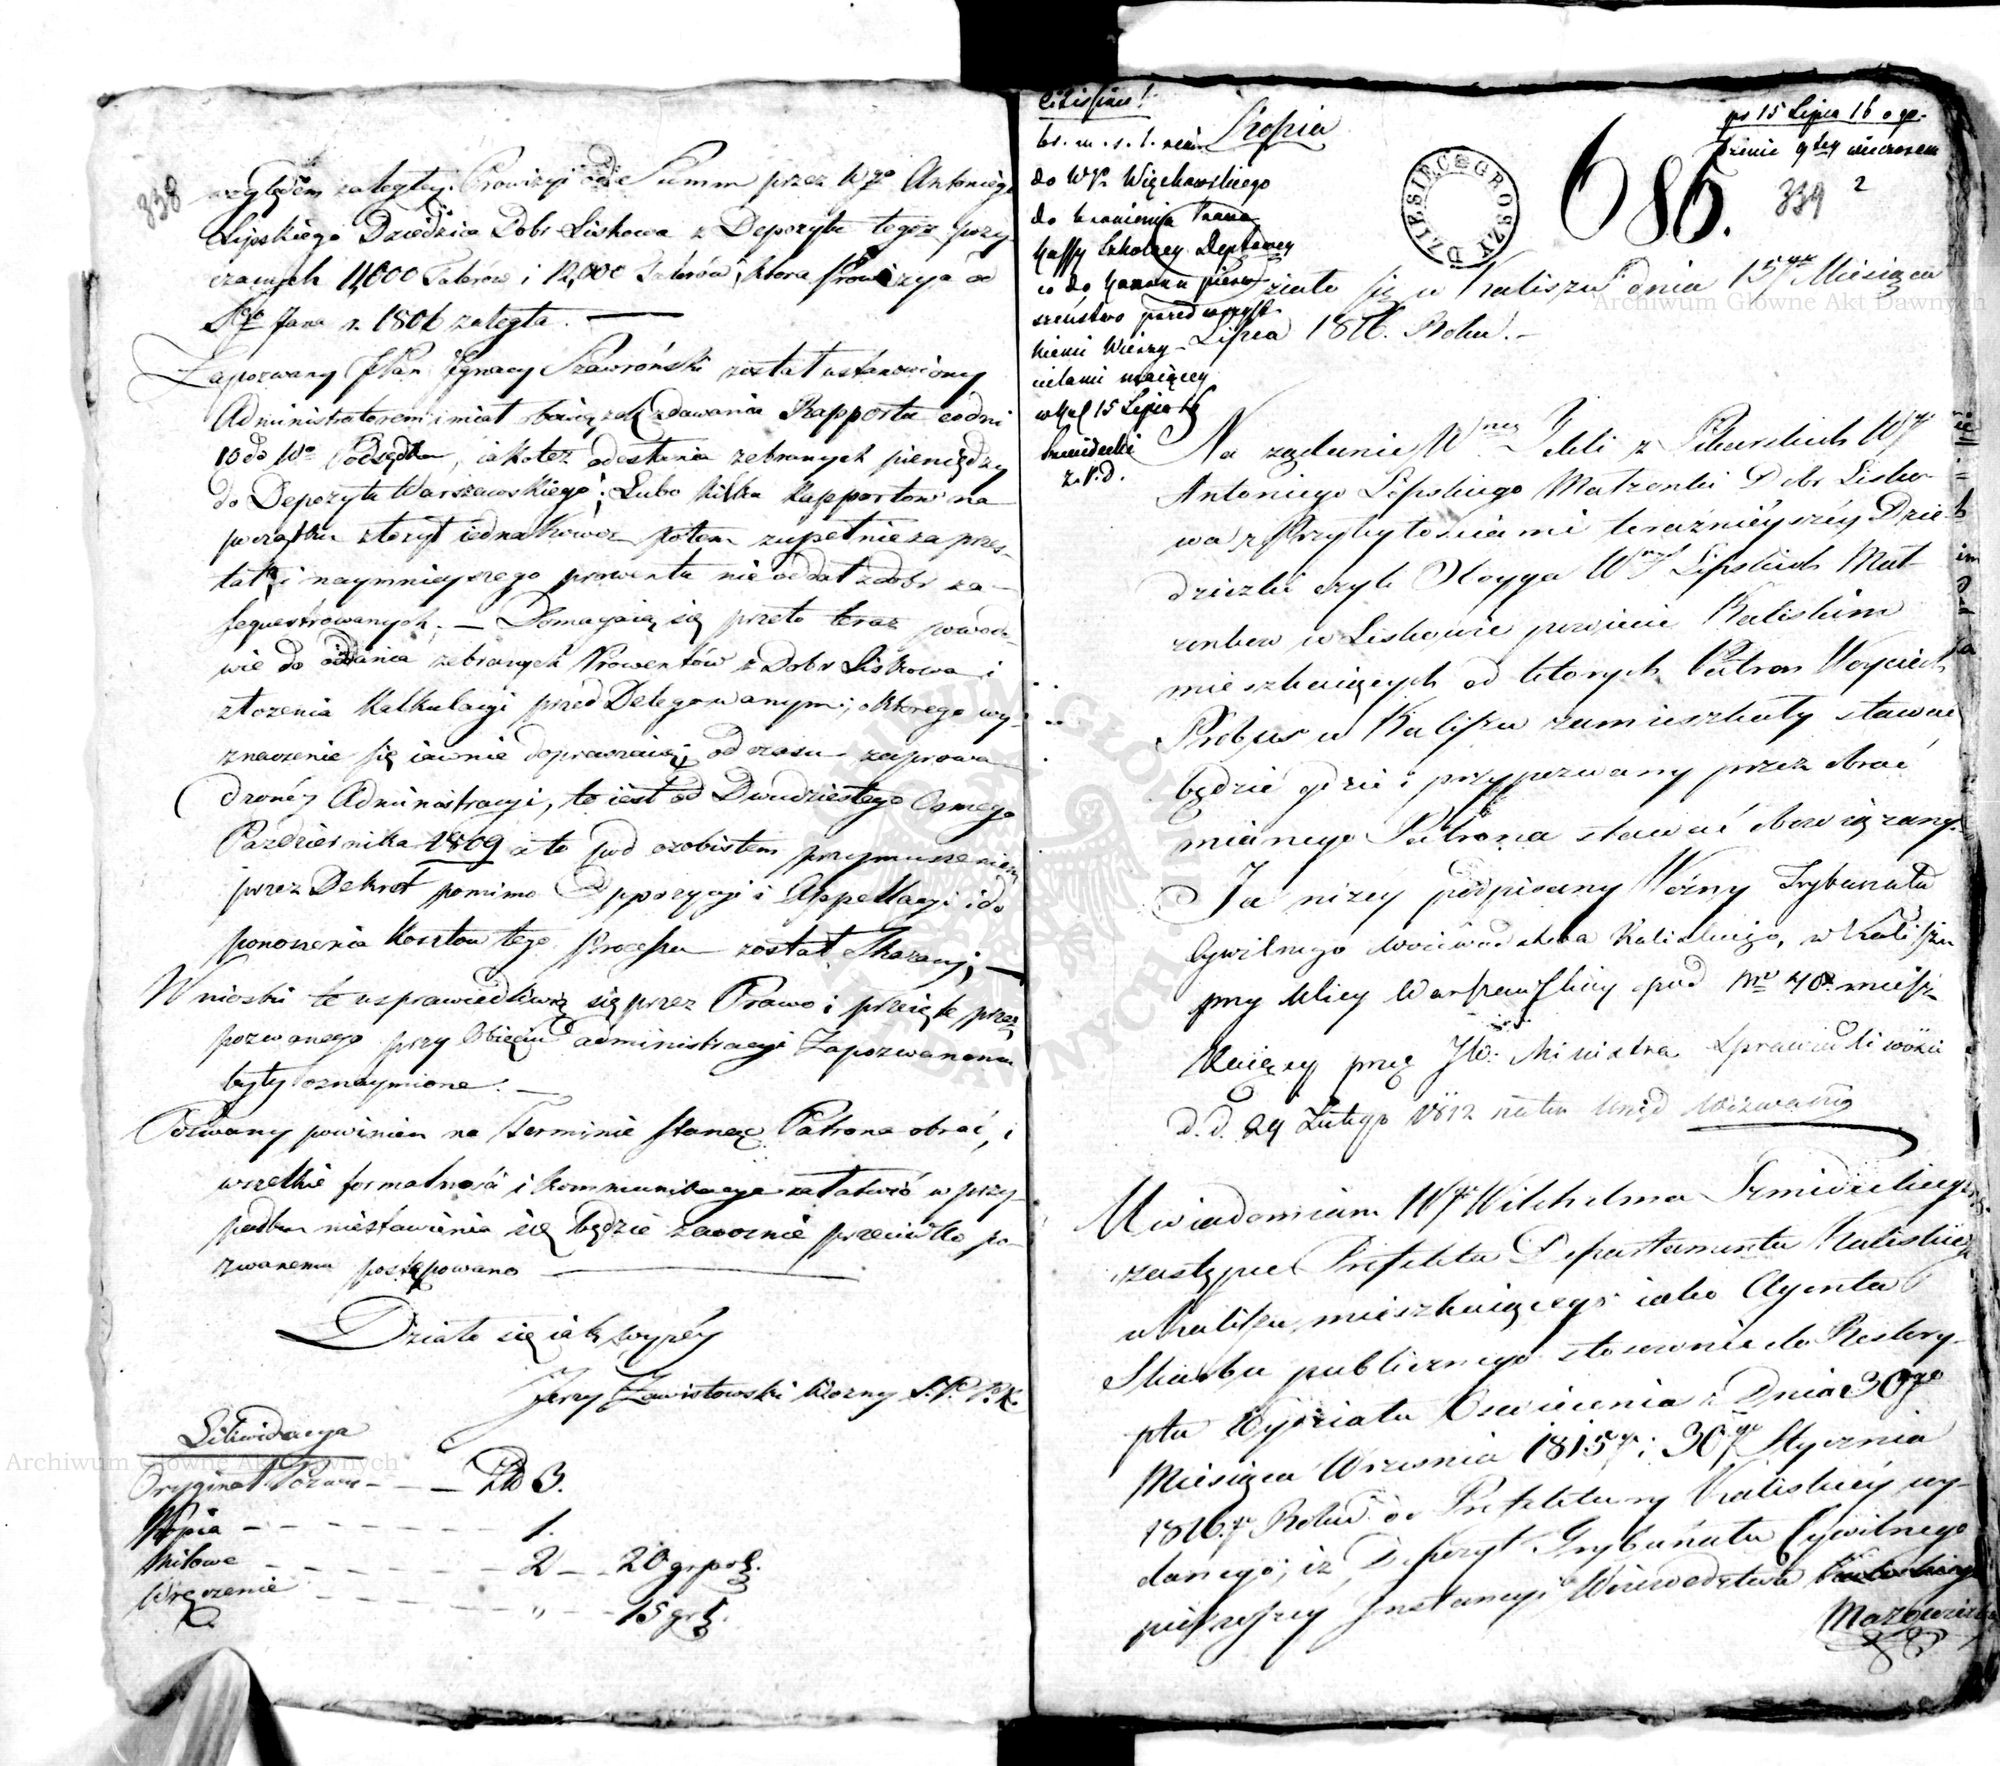 338
względem zaległey Prowizyi od Summ przez Wgo Antoniego
Lipskiego Dziedzica Dobr Liskowa z Depozytu tegoz pozy-
czanych 11,000 Talerów i 12,000 Talerów, ktora Prowizya od
Sgo Jana r. 1806 zaległa. —
Zapozwany JPan Ignacy Szawroński został ustanowiony
Administratorem i miał obowiązek zdawania Rapportu co dni
10 do Wo Podsędka, iako też odesłania zebranych pieniędzy
do Depozytu Warszawskiego; Lubo kilka Rapportow na
początku złozył iednakowoz potem zupełnie zaprzes-
tał, i naymnieyszego prowentu nie oddał z dobr za-
sequestrowanych. — Domagaią się przeto teraz powodo-
wie do oddania zebranych Prowentów z Dobr Liskowa i
złozenia Kalkulacyi przed Delegowanym, o ktorego wy-
znaczenie się iawnie dopraszaią, od czasu zaprowa-
dzonéy Administracyi, to iest od Dwudziestego Osmego
Pazdziernika 1809 a to pod osobistem przymuszeniem
przez Dekret pomimo Oppozycyi i Appellacyi i do
ponoszenia Kosztow tego Processu został skazany; —
Wnioski te usprawiedliwią się przez Prawo i przeięte przez
pozwanego przy Obięciu administracyi Zapozwanemu
były oznaymione. —
Pozwany powinien na Terminie stanąć Patrona obrać, i
wszelkie formalności i kommunikacye załatwić w przy-
padku niestawienia się będzie zaocznie przeciwko po-
zwanemu postępowano
Działo się iak wyżéy
Jerzy Zawistowski Wozny
Likwidacya
Oryginał Pozwu - - - Zło 3.
Kopia - - - 1.
Milowe - - - 2 - - 20 gr pol.
Wręczenie - - - „ - - 15 gr.
Kopia
do WP. Więckowskiego
do bronienia Prawa
Kassy Szkolney Deptowey
co do pierw-
szeństwo przed wszyst-
kiemi Wierzy-
cielami maiącey
15 Lipca
Szmidecki
z. P. d.
po 15 Lipca 16 o go-
dzinie 9tey wieczorem
339 2
DZIESIĘC GROSZY
686.
Działo się w Kaliszu dnia 15go Miesiąca
Lipca 1816. Roku. —
Na ządanie Wney Tekli z Piwarskich Wgo
Antoniego Lipskiego Małzonki Dobr Lisko-
wa z Przybytosciami teraznieyszéy Dzie-
dziczki czyli Oboyga Lipskich Mał-
zonkow w Liskowie powiecie Kaliskim
mieszkaiących od ktorych Patron Woyciech
Probus w Kaliszu zamieszkały stawać
będzie gdzie i przypozwany przez obrać
mianego Patrona stawać obowiązany.
Ja nizey podpisany Wozny Trybunału
Cywilnego Woiewodztwa Kaliskiego, w Kaliszu
przy Ulicy Warszawskiey pod Nro 40. miesz-
kaiący przez JW. Ministra Sprawiedliwości
d. d. 29 Lutego 1812 na ten Urząd wezwany
Uwiadomiam Wgo Wilchelma Szmideckiego
zastępcę Prefekta Departamentu Kaliskiego
w Kaliszu mieszkaiącego iako Agenta
Skarbu publicznego stosownie do Reskry-
ptu Wydziału Oswiecenia z Dnia 30go
Miesiąca Wrzesnia 1815go i 30go Stycznia
1816. Roku do Prefektury Kaliskiey wy-
danego; iz Depozyt Trybunału Cywilnego
pierwszey Instancyi Woiewodztwa
Mazowiec
Archiwum Główne Akt Dawnych
Archiwum Główne Akt Dawnych
ARCHIWUM GŁÓWNE AKT DAWNYCH